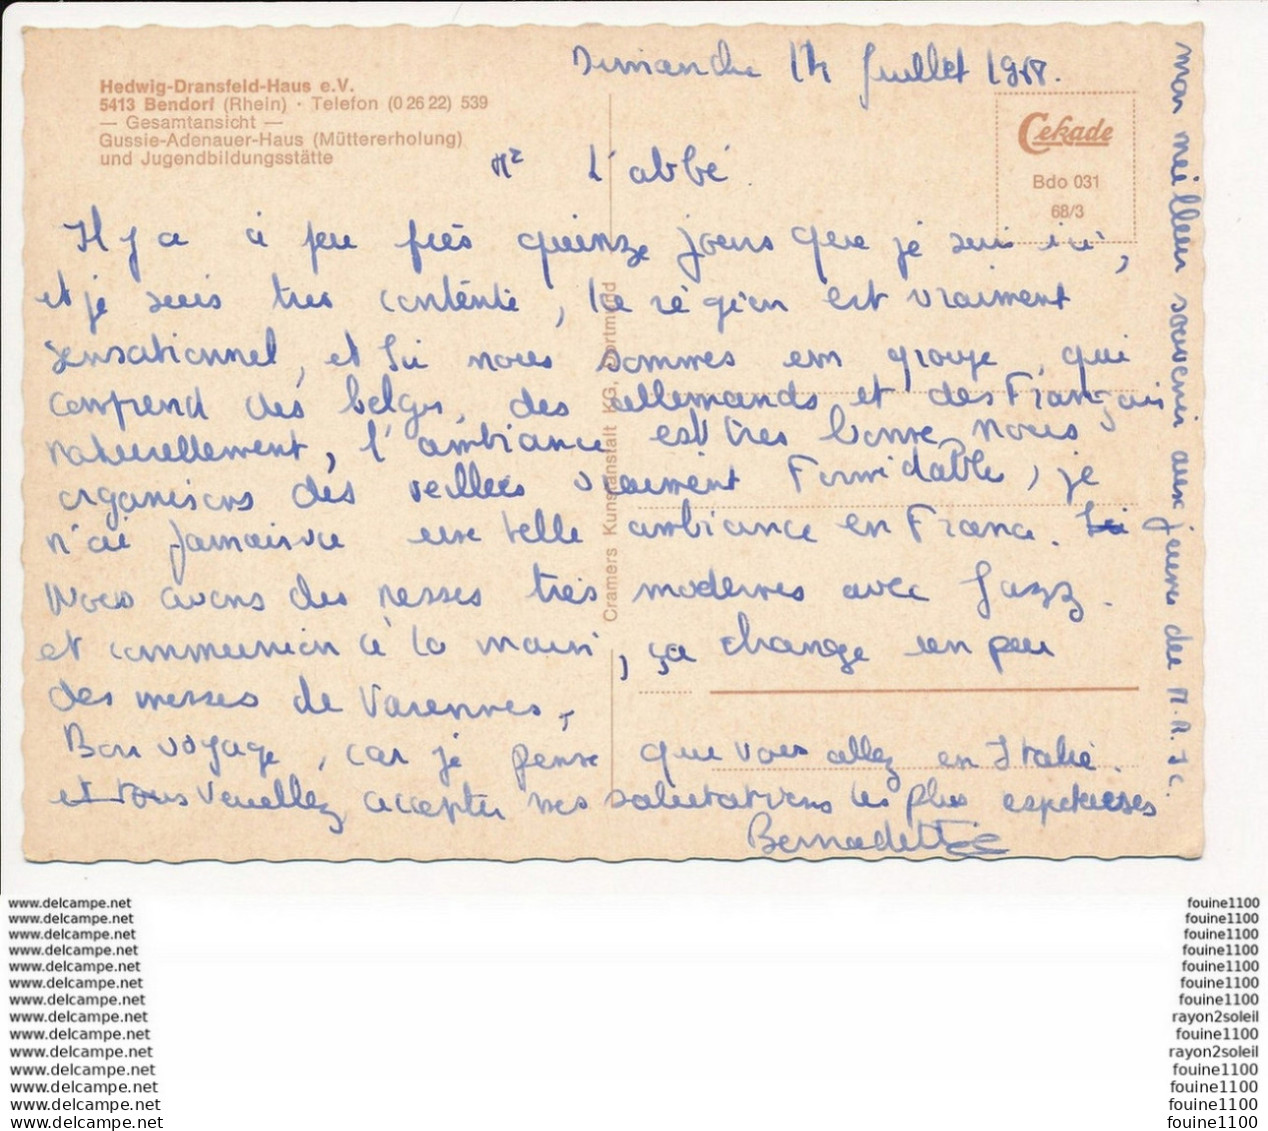 Dimanche 14 Juillet 1968.
Hedwig-Dransfeld-Haus e.V.
5413 Bendorf (Rhein) · Telefon (0 26 22) 539
— Gesamtansicht —
Gussie-Adenauer-Haus (Müttererholung)
und Jugendbildungsstätte
Cekade
Bdo 031
68/3
Mr L'abbé
Il y a à peu près quinze jours que je suis ici,
et je suis très contente, la région est vraiment
sensationnel, et ici nous sommes em groupe, qui
comprend des belges, des allemands et des Français
naturellement, l'ambiance est très bonne, nous
organisons des veillées vraiment Formidables, je
n'ai Jamais vu une telle ambiance en France.
Nous avons des messes très modernes avec Jazz.
et communion à la main, ça change un peu
des messes de Varennes,
Bon voyage, car je pense que vous allez en Italie.
et vous veuellez accepter mes salutations les plus
Bernadette
mon meilleur souvenir aux jeunes du M.R.J.C.
Cramers Kunstanstalt KG, Dortmund
www.delcampe.net
www.delcampe.net
www.delcampe.net
www.delcampe.net
www.delcampe.net
www.delcampe.net
www.delcampe.net
www.delcampe.net
www.delcampe.net
www.delcampe.net
www.delcampe.net
www.delcampe.net
www.delcampe.net
www.delcampe.net
fouine1100
fouine1100
fouine1100
fouine1100
fouine1100
fouine1100
fouine1100
rayon2soleil
fouine1100
rayon2soleil
fouine1100
fouine1100
fouine1100
fouine1100